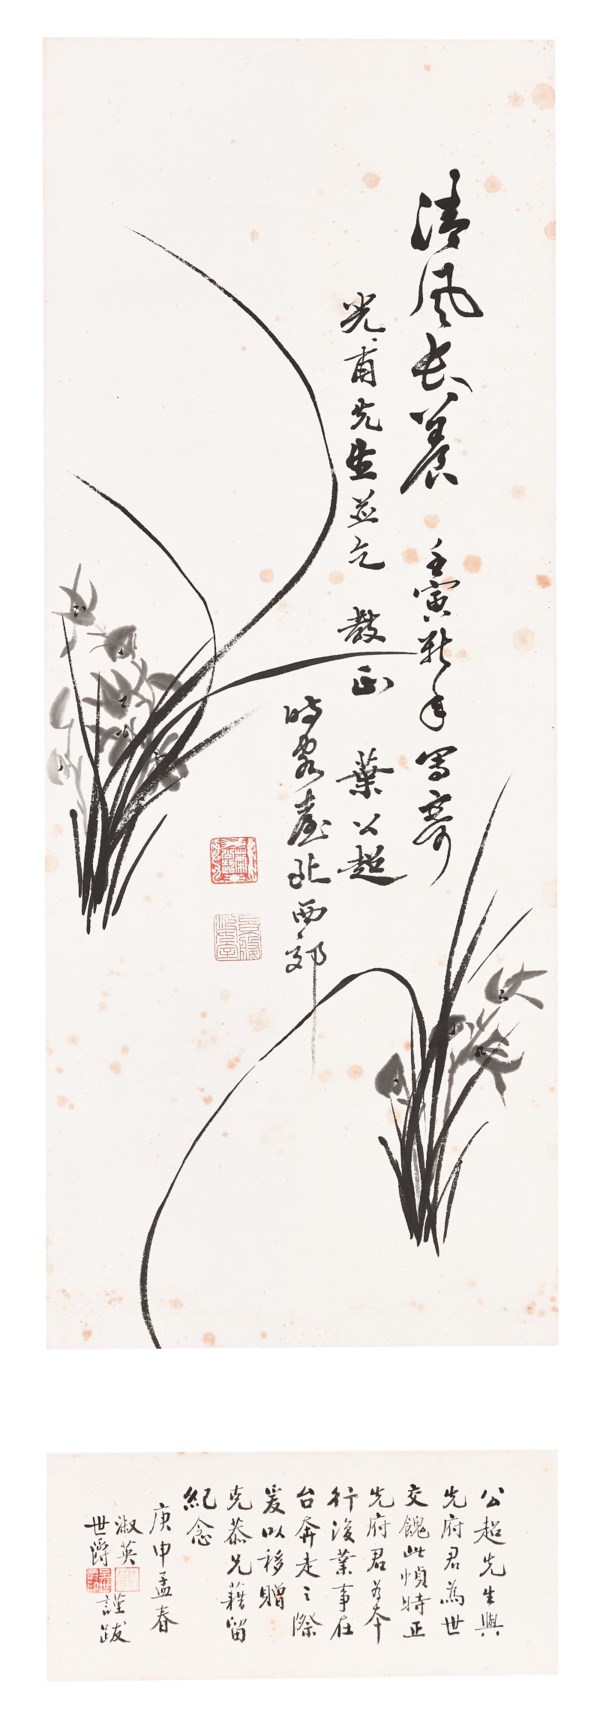 清風長養 壬寅新年寫寄
光甫先生並乞 教正 葉公超
時客臺北西郊
公超先生與
先府君為世
交餽此幀時正
先府君為奉
行後業事在
台奔走之際
爰以移贈
克恭兄藉留
紀念
庚申孟春
淑英
世爵 謹跋